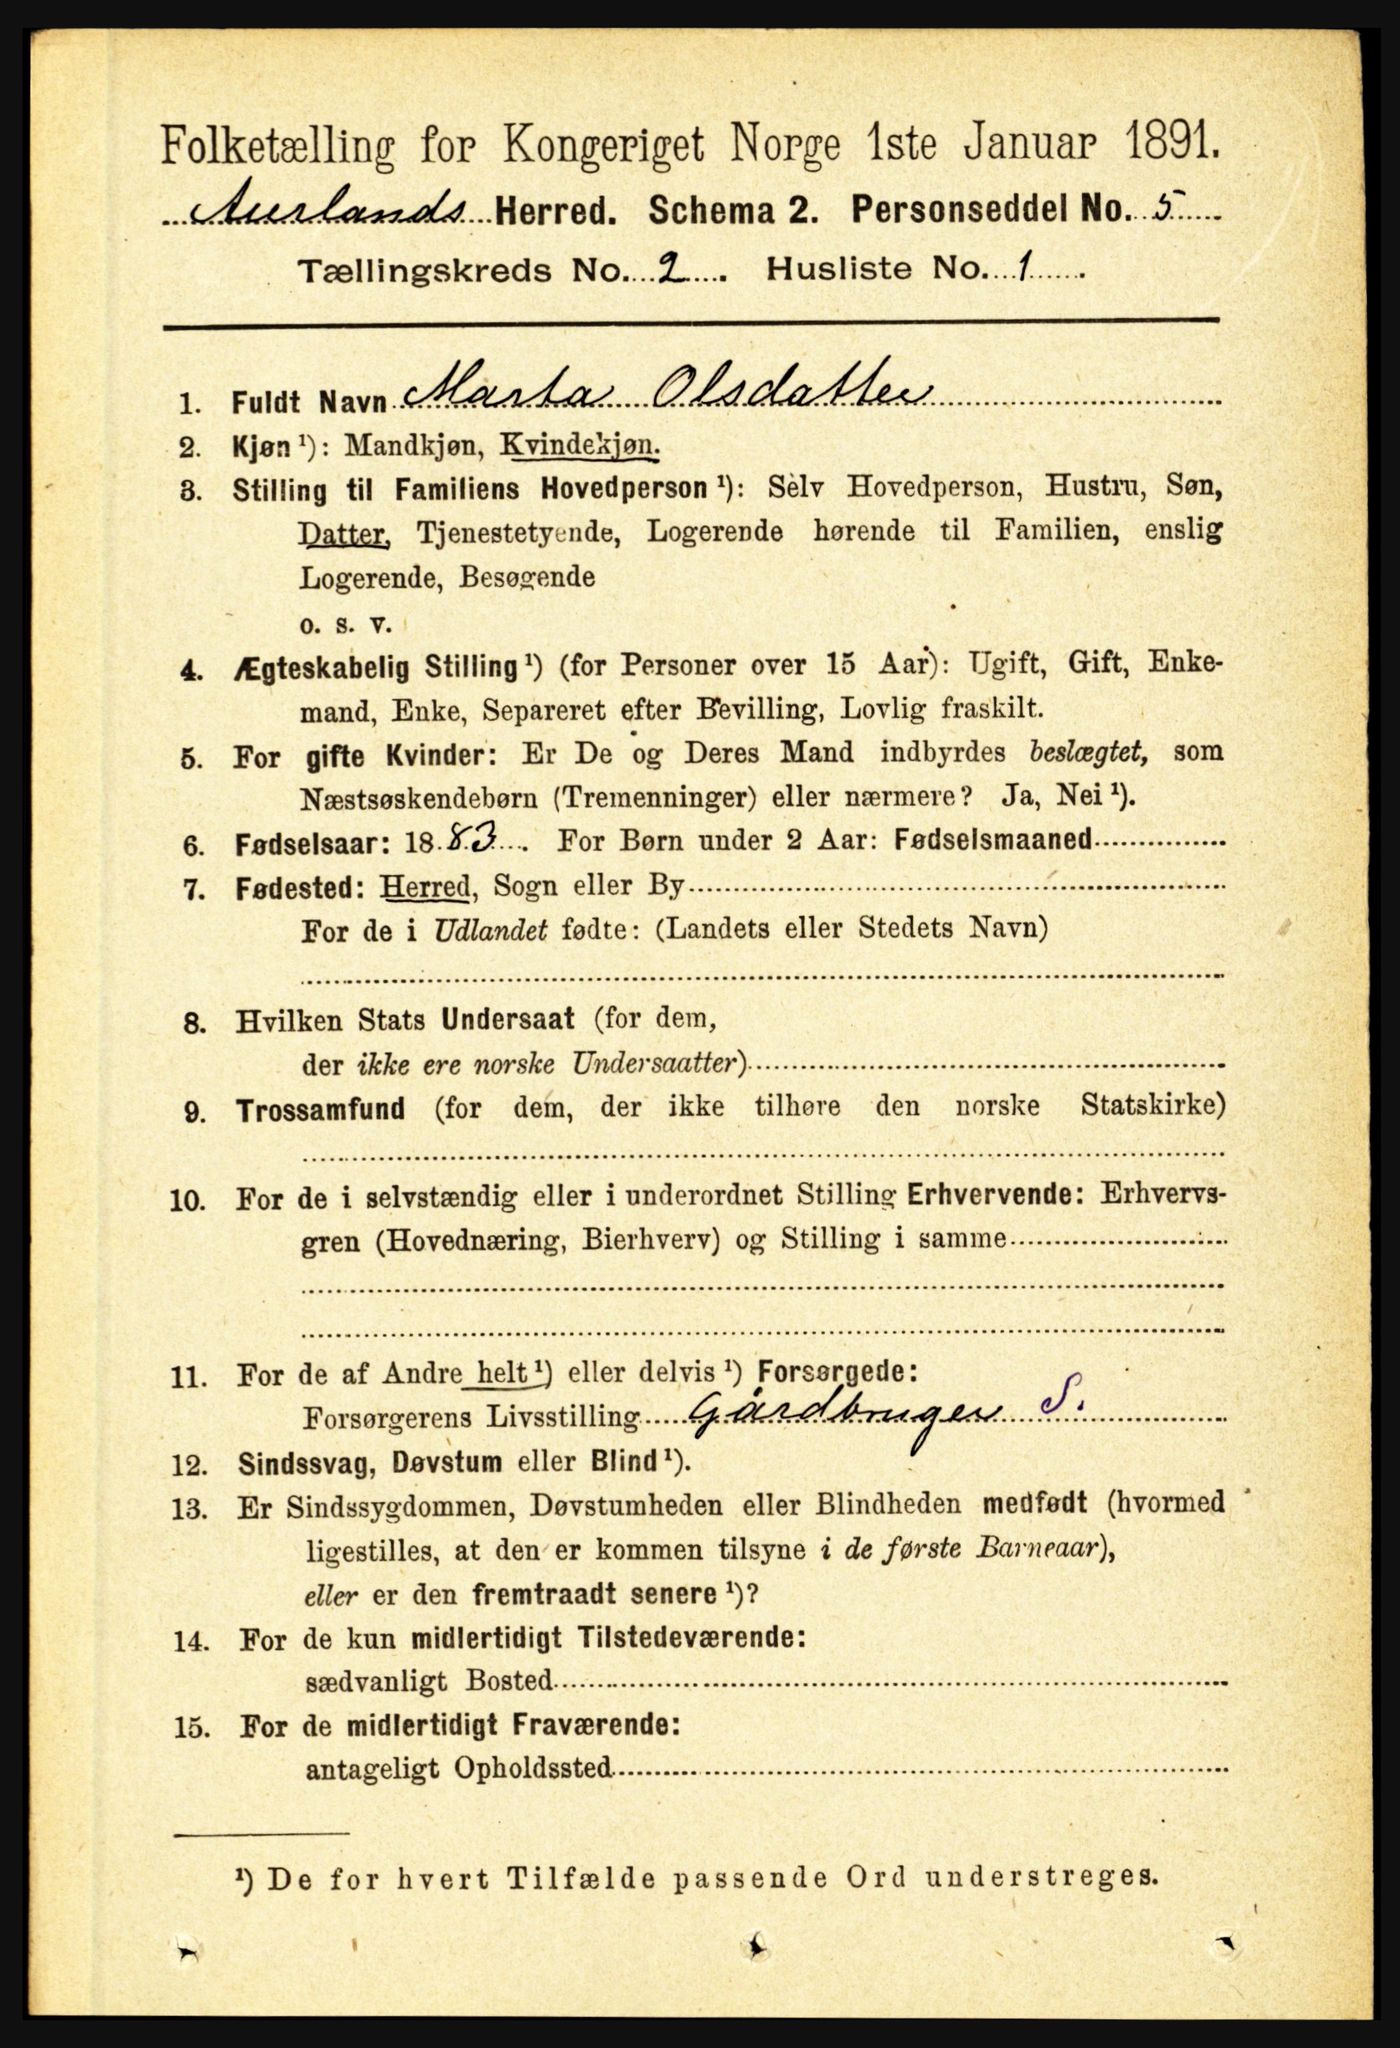 Folketælling for Kongeriget Norge 1ste Januar 1891.
Aurlands Herred. Schema 2. Personseddel No. 5
Tællingskreds No. 2. Husliste No. 1.
1. Fuldt Navn Marta Olsdatter
2. Kjøn ¹): Mandkjøn, Kvindekjøn.
3. Stilling til Familiens Hovedperson ¹): Selv Hovedperson, Hustru, Søn,
Datter, Tjenestetyende, Logerende hørende til Familien, enslig
Logerende, Besøgende
o. s. v.
4. Ægteskabelig Stilling ¹) (for Personer over 15 Aar): Ugift, Gift, Enke-
mand, Enke, Separeret efter Bevilling, Lovlig fraskilt.
5. For gifte Kvinder: Er De og Deres Mand indbyrdes beslægtet, som
Næstsøskendebørn (Tremenninger) eller nærmere? Ja, Nei ¹).
6. Fødselsaar: 1883. For Børn under 2 Aar: Fødselsmaaned
7. Fødested: Herred, Sogn eller By
For de i Udlandet fødte: (Landets eller Stedets Navn)
8. Hvilken Stats Undersaat (for dem,
der ikke ere norske Undersaatter)
9. Trossamfund (for dem, der ikke tilhøre den norske Statskirke)
10. For de i selvstændig eller i underordnet Stilling Erhvervende: Erhvervs-
gren (Hovednæring, Bierhverv) og Stilling i samme
11. For de af Andre helt ¹) eller delvis ¹) Forsørgede:
Forsørgerens Livsstilling Gårdbruger S.
12. Sindssvag, Døvstum eller Blind ¹).
13. Er Sindssygdommen, Døvstumheden eller Blindheden medfødt (hvormed
ligestilles, at den er kommen tilsyne i de første Barneaar),
eller er den fremtraadt senere ¹)?
14. For de kun midlertidigt Tilstedeværende:
sædvanligt Bosted
15. For de midlertidigt Fraværende:
antageligt Opholdssted
¹) De for hvert Tilfælde passende Ord understreges.